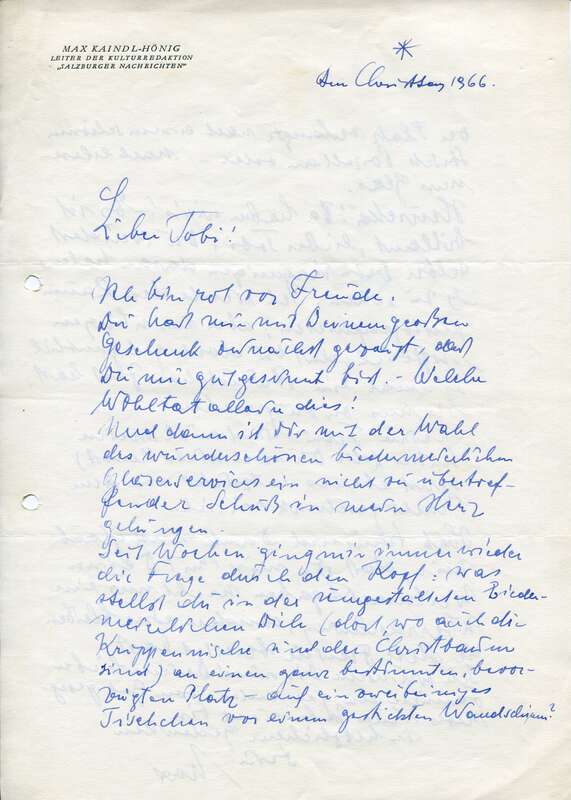 MAX KAINDL-HÖNIG
LEITER DER KULTURREDAKTION
„SALZBURGER NACHRICHTEN"
Am Christtag 1966.
Lieber Tobi!
Ich bin rot vor Freude.
Du hast mir mit Deinem großen
Geschenk zunächst gezeigt, daß
Du mir gut gesinnt bist. – Welche
Wohltat allein dies!
Und dann ist Dir mit der Wahl
des wunderschönen biedermeierlichen
Gläserservices ein nicht zu übertref-
fender Schuß in mein Herz
gelungen.
Seit Wochen ging mir immer wieder
die Frage durch den Kopf: was
stellst du in der umgestalteten Bieder-
meierlichen (dort, wo auch die
Krippennische und der Christbaum
sind) an einen ganz bestimmten, bevor-
zugten Platz – auf ein zweibeiniges
Tischchen vor einem gestickten Wandschirm?